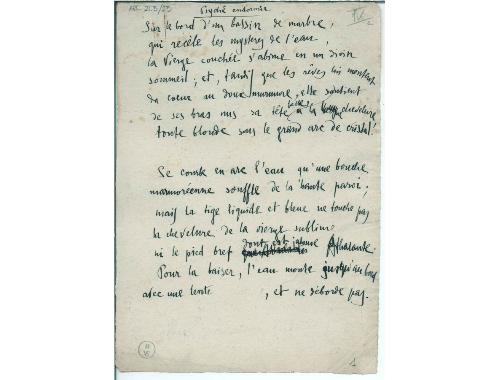 Psyché endormie
Sur le bord d'un bassin de marbre,
qui recèle les mystères de l'eau,
la Vierge couchée s'abîme en un divin
sommeil ; et, tandis que les rêves lui montent
du coeur au doux murmure, elle soutient
de ses bras nus sa tête à la chevelure
toute blonde sous le grand arc de cristal !
Se courbe en arc l'eau qu'une bouche
marmoréenne souffle de la haute paroi ;
mais la tige liquide et bleue ne touche pas
la chevelure de la vierge sublime
ni le pied bref dont est jalouse Atalante.
Pour la baiser, l'eau monte jusqu'au bord
avec une lente , et ne déborde pas.
1